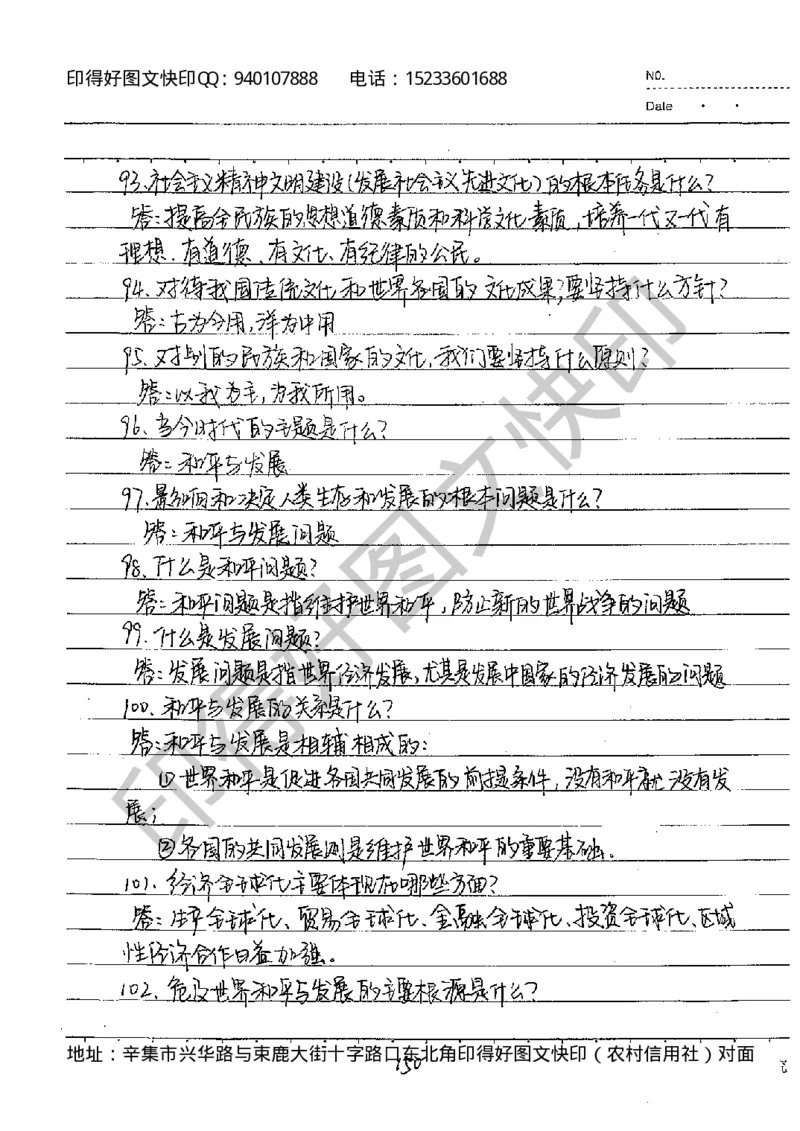 印得好图文快印QQ：940107888 电话：15233601688
NO.
Date
93.社会主义精神文明建设(发展社会主义先进文化)的根本任务是什么?
答:提高全民族的思想道德素质和科学文化素质,培养一代又一代有
理想、有道德、有文化、有纪律的公民。
94.对待我国传统文化和世界各国的文化成果,要坚持什么方针?
答:古为今用,洋为中用
95.对别的民族和国家的文化,我们要坚持什么原则?
答:以我为主,为我所用。
96.当今时代的主题是什么?
答:和平与发展
97.影响和决定人类生存和发展的根本问题是什么?
答:和平与发展问题
98.什么是和平问题?
答:和平问题是指维护世界和平,防止新的世界战争的问题
99.什么是发展问题?
答:发展问题是指世界经济发展,尤其是发展中国家的经济发展的问题
100.和平与发展的关系是什么?
答:和平与发展是相辅相成的:
①世界和平是促进各国共同发展的前提条件,没有和平就没有发
展;
②各国的共同发展则是维护世界和平的重要基础。
101.经济全球化主要体现在哪些方面?
答:生产全球化、贸易全球化、金融全球化、投资全球化、区域
性经济合作日益加强。
102.危及世界和平与发展的主要根源是什么?
地址：辛集市兴华路与束鹿大街十字路口东北角印得好图文快印（农村信用社）对面
150
印得好图文快印